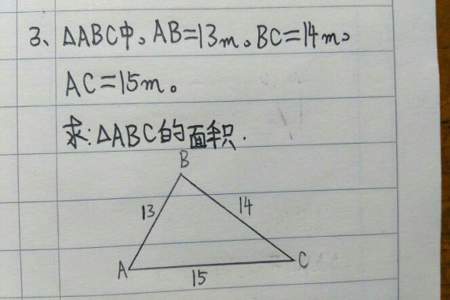 3、△ABC中。AB=13m。BC=14m。
AC=15m。
求:△ABC的面积.
B
13
14
A
C
15